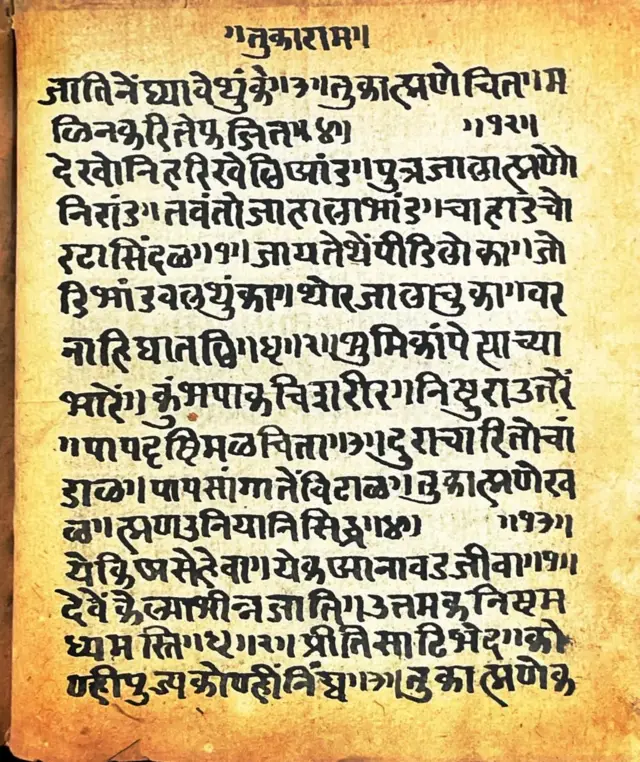 ॥तुकाराम॥
जातिनें घ्यावे थुंके॥३॥तुका ह्मणे चित॥म
ळिन करिते फजित॥४॥ ॥१२॥
देखोनि हरिखेलि आंड॥पुत्र जाला ह्मणे
निरांड॥तवं तो जाहाला भांड॥चाहाडचो
रटा सिंदळ॥१॥जाय तेथें पीडि लोका॥जो
डि भांडवल थुंका॥थोर जाला चुका॥वर
नाहि घातलि॥धृ॥२॥भुमि कांपे त्याच्या
भारें॥कुंभपाकचि शरीर॥निष्ठुर उत्तरें
॥पापदृष्टि मळ चित्त॥३॥दुराचारि तो चां
डाळ॥पाप सांगातें विटाळ॥तुका ह्मणे ख
ळ॥ह्मणउनियानि सिद्ध॥४॥ ॥१३॥
येकि असे हेवा॥येक अनावड जीवा॥१॥
देवें केल्या भीन्न जाति॥उत्तम कनिस म
ध्यम स्ति॥धृ॥२॥प्रीति साटि भेद॥को
ण्ही पुज्य कोण्ही निंद्य॥३॥तुका ह्मणे क